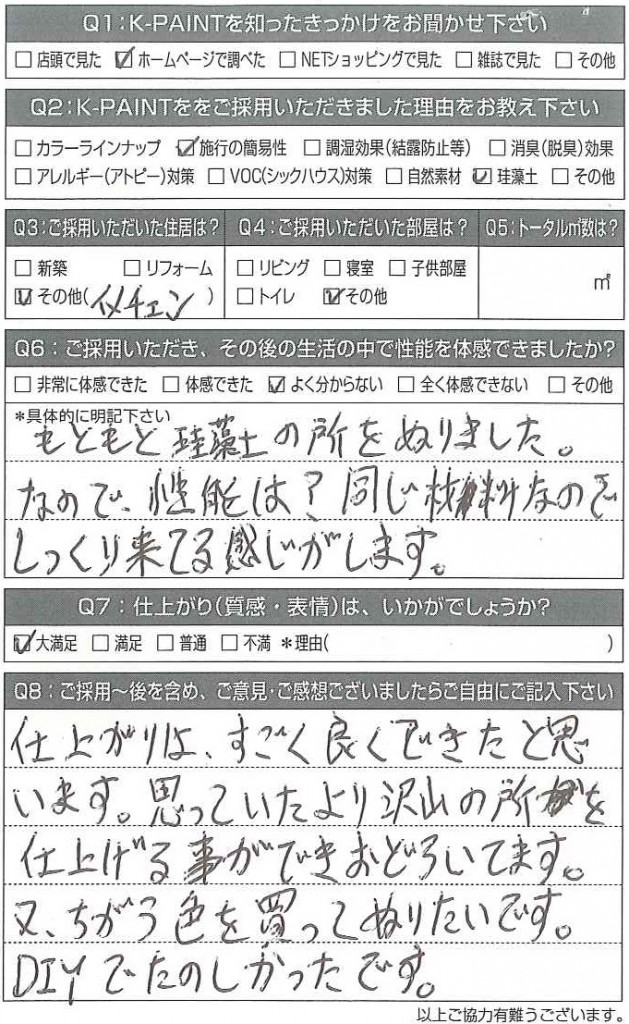 Q1:K-PAINTを知ったきっかけをお聞かせ下さい
□店頭で見た ☑ホームページで調べた □NETショッピングで見た □雑誌で見た □その他
Q2:K-PAINTををご採用いただきました理由をお教え下さい
□カラーラインナップ ☑施行の簡易性 □調湿効果(結露防止等) □消臭(脱臭)効果
□アレルギー(アトピー)対策 □VOC(シックハウス)対策 □自然素材 ☑珪藻土 □その他
Q3:ご採用いただいた住居は? Q4:ご採用いただいた部屋は? Q5:トータル㎡数は?
□新築 □リフォーム □リビング □寝室 □子供部屋
☑その他(イメチェン) □トイレ ☑その他 ㎡
Q6:ご採用いただき、その後の生活の中で性能を体感できましたか?
□非常に体感できた □体感できた ☑よく分からない □全く体感できない □その他
*具体的に明記下さい
もともと珪藻土の所をぬりました。
なので、性能は?同じ材料なので
しっくり来てる感じがします。
Q7:仕上がり(質感・表情)は、いかがでしょうか?
☑大満足 □満足 □普通 □不満 *理由( )
Q8:ご採用〜後を含め、ご意見・ご感想ございましたらご自由にご記入下さい
仕上がりは、すごく良くできたと思
います。思っていたより沢山の所を
仕上げる事ができおどろいてます。
又、ちがう色を買ってぬりたいです。
DIYでたのしかったです。
以上ご協力有難うございます。